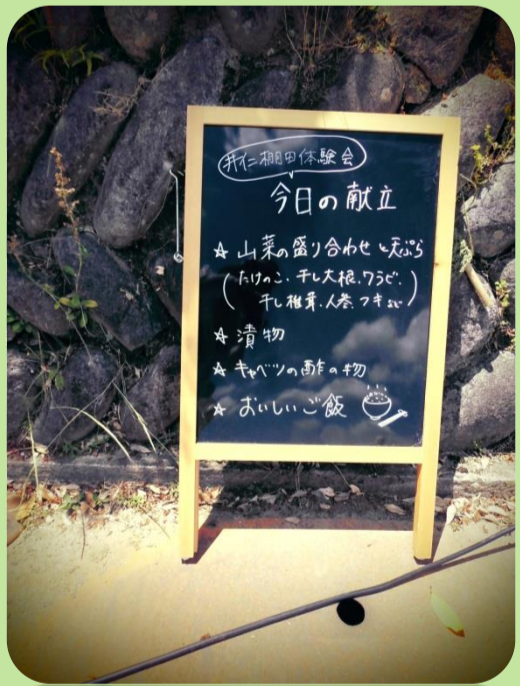 井仁棚田体験会
今日の献立
☆ 山菜の盛り合わせと天ぷら
(たけのこ、干し大根、ワラビ、
干し椎茸、人参、フキなど)
☆ 漬物
☆ キャベツの酢の物
☆ おいしいご飯